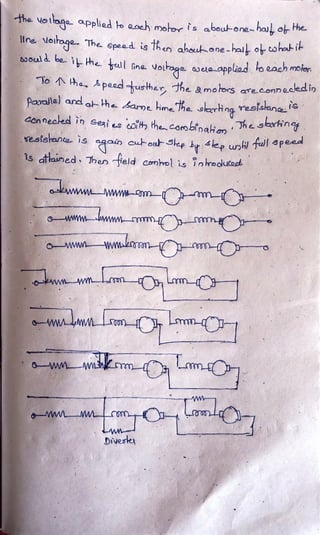 the voltage applied to each motor is about one-half of the
line voltage. The speed is then about one-half of what it
would be if the full line voltage were applied to each motor.
To ↑ the speed further, the 2 motors are connected in
Parallel and at the same time the starting resistance is
connected in series with the combination. The starting
resistance is again cut out step by step until full speed
is attained. Then field control is introduced
Diverter